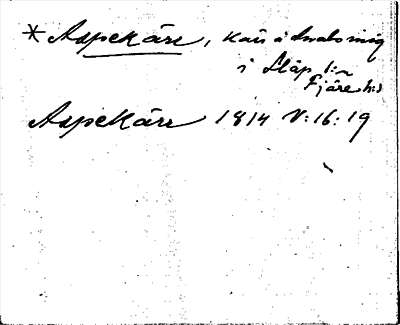 * Aspekärr, kan å Snabsmig
i Släp s:n
Fjäre h:d
Aspekärr 1814 V:16:19